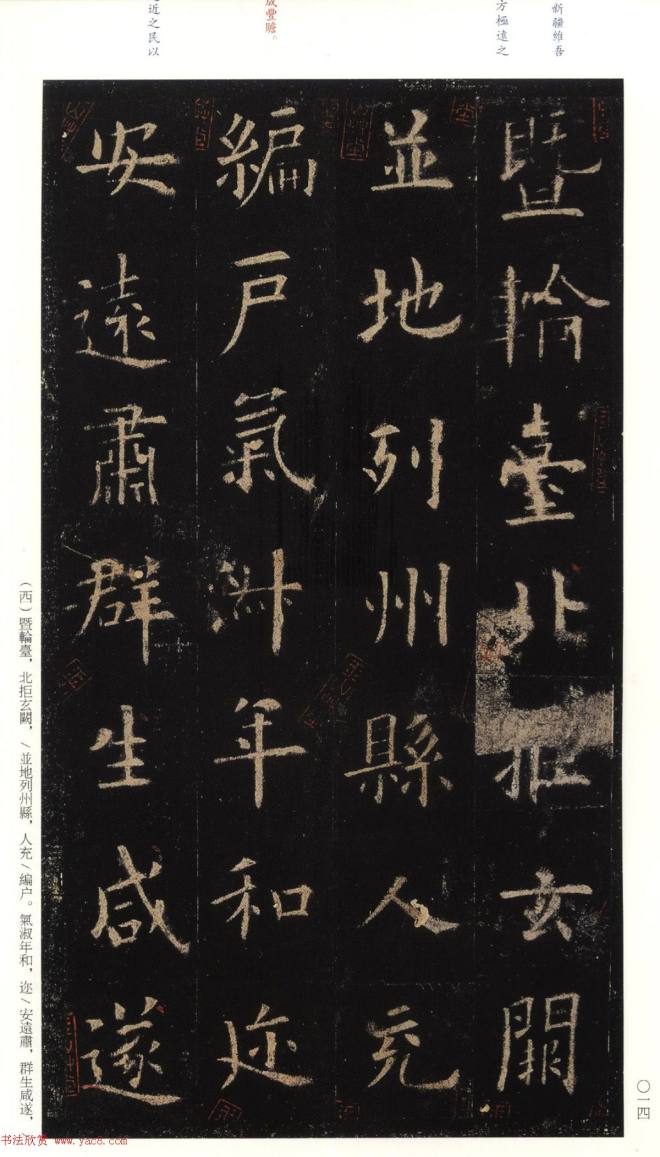 新疆維吾
方極遠之
成豐贍。
近之民以
暨輪臺北拒玄闕
並地列州縣人充
編戶氣淋年和迩
安遠肅群生咸遂
(西)暨輪臺,北拒玄闕,/並地列州縣,人充/編户。氣淑年和,迩/安遠肅,群生咸遂,
〇一四
书法欣赏 www.yac8.com